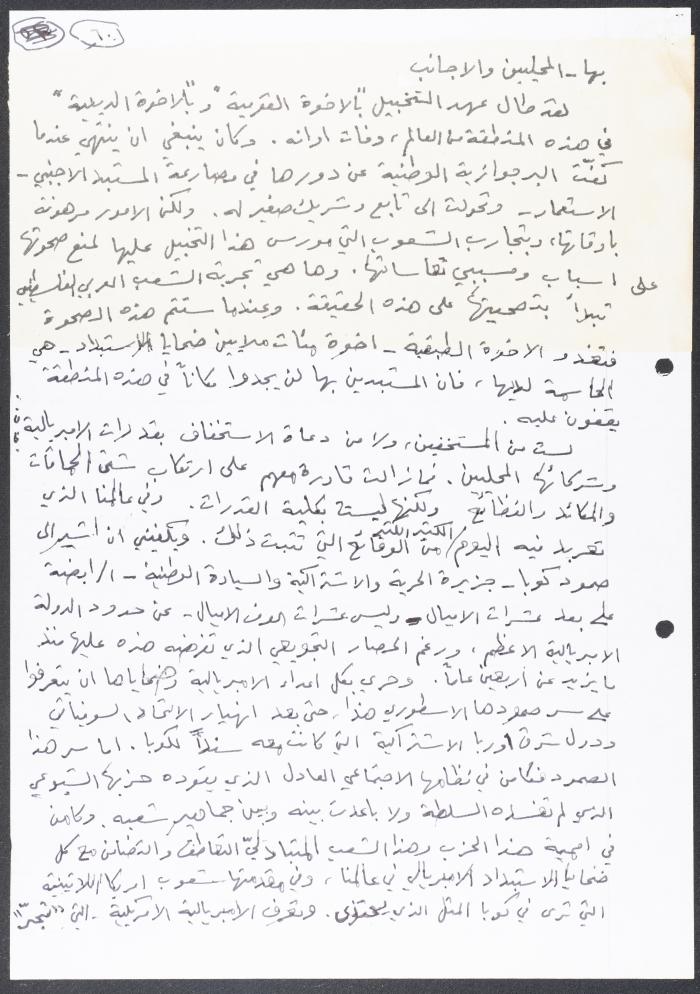 ٦٠
بها - المحليين والاجانب
لقد طال عهد التخبيل "بالاخوة القومية" و "بالاخوة الدينية"
في هذه المنطقة من العالم، وفات اوانه. وكان ينبغي ان ينتهي عندما
كفّت البرجوازية الوطنية عن دورها في مصارعة المستبد الاجنبي -
الاستعمار - وتحولت الى تابع وشريك صغير له. ولكن الامور مرهونة
باوقاتها، وبتجارب الشعوب التي مورس هذا التخبيل عليها لمنع صحوتها
على اسباب ومسببي تعاساتها. وها هي تجربة الشعب العربي الفلسطيني
تبدأ بتصحيتها على هذه الحقيقة. وعندما ستتم هذه الصحوة
فتغدو الاخوة الطبقية - اخوة مئات ملايين ضحايا الاستبداد - هي
الحاسمة لديها، فان المستبدين بها لن يجدوا مكاناً في هذه المنطقة
يقفون عليه.
لست من المستخفين، ولا من دعاة الاستخفاف بقدرات الامبريالية
وشركائها المحليين. فما زالت قادرة معهم على ارتكاب شتى الحماقات
والمكائد والفظائع ولكنها ليست بكلية القدرات. وفي عالمنا الذي
تعربد فيه اليوم الكثير الكثير من الوقائع التي تثبت ذلك. ويكفيني ان اشير الى
صمود كوبا - جزيرة الحرية والاشتراكية والسيادة الوطنية - الرابضة
على بعد عشرات الاميال - وليس عشرات الوف الاميال - عن حدود الدولة
الامبريالية الاعظم، ورغم الحصار التجويعي الذي تفرضه هذه عليها منذ
ما يزيد عن اربعين عاماً. وحري بكل اعداء الامبريالية وضحاياها ان يتعرفوا
على سر صمودها الاسطوري هذا، حتى بعد انهيار الاتحاد السوفياتي
ودول شرق اوربا الاشتراكية التي كانت معه سنداً لكوبا. اما سر هذا
الصمود فكامن في نظامها الاجتماعي العادل الذي يقوده حزبها الشيوعي
الذي لم تفسده السلطة ولا باعدت بينه وبين جماهير شعبه. وكامن
في اممية هذا الحزب وهذا الشعب المتبادليّ التعاطف والتضامن مع كل
ضحايا الاستبداد الامبريالي في عالمنا، وفي مقدمتها شعوب امريكا اللاتينية
التي ترى في كوبا المثل الذي يحتذى. وتعرف الامبريالية الامريكية - التي "تتجبّر"